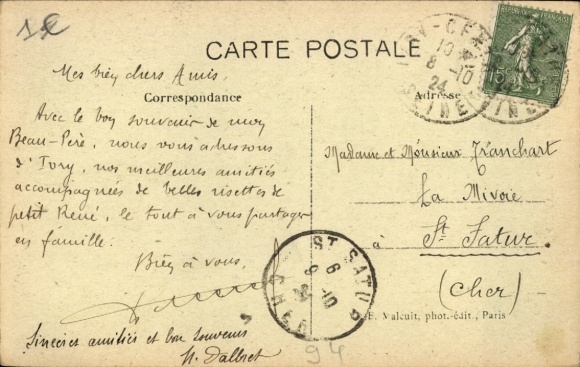 CARTE POSTALE
Mes bien chers Amis.
Correspondance
Avec le bon souvenir de mon
Beau-Père, nous vous adressons
d'Ivry, nos meilleures amitiés
accompagnées de belles risettes de
petit René, le tout à vous partager
en famille.
Bien à vous,
Sincères amitiés et bon souvenir
H. Dalbret
Adresse
Madame et Monsieur Franchart
La Mivoie
à St. Satur
(Cher)
E. Valcuit, phot.-édit., Paris
ST SATUR
6
9 -10
24
CHER
10
8 -10
24
SEINE
15
94